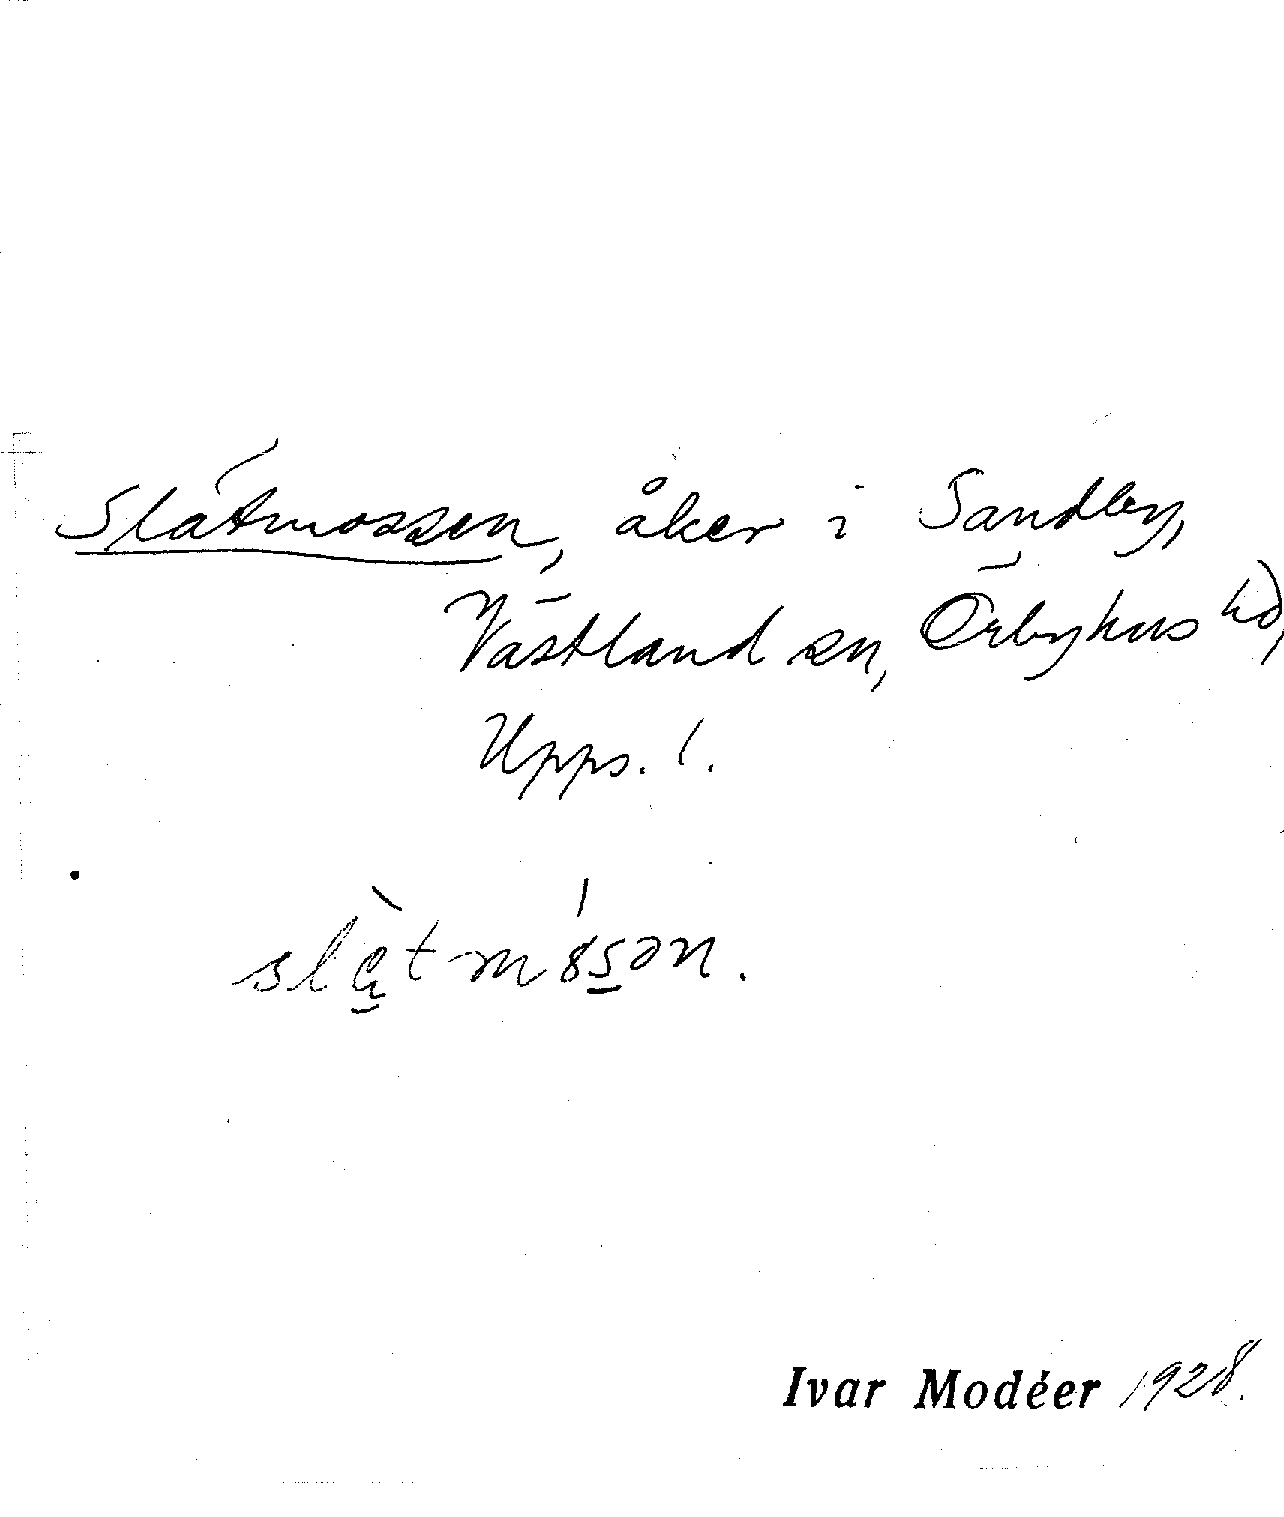 Slåtmossen, åker i Sandby,
Västland sn, Örbyhus hd,
Upps. l.
Ivar Modéer 1928.